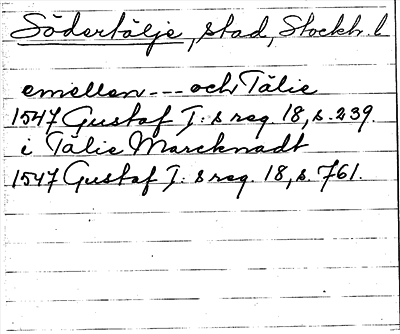 Södertälje, stad, Stockh. l
emellan --- och Tälie
1547 Gustaf I: s reg. 18, s. 239.
i Tälie Marcknadt
1547 Gustaf I: s reg. 18, s. 761.